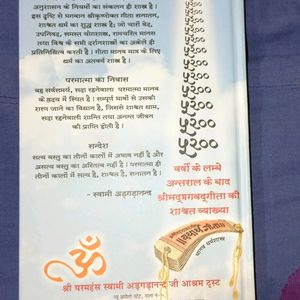 अनुशासन के नियमों का संकलन ही शास्त्र है।
इस दृष्टि से भगवान श्रीकृष्णोक्त गीता सनातन,
शाश्वत धर्म का शुद्ध शास्त्र है; जो चारों वेद,
उपनिषद्, समस्त योगशास्त्र, रामचरित मानस
तथा विश्व के सभी दर्शनशास्त्रों का अकेले ही
प्रतिनिधित्व करती है। गीता मानव मात्र के लिए
धर्म का अतर्क्य शास्त्र है।
परमात्मा का निवास
वह सर्वसमर्थ, सदा रहनेवाला परमात्मा मानव
के हृदय में स्थित है। सम्पूर्ण भावों से उसकी
शरण जाने का विधान है, जिससे शाश्वत धाम,
सदा रहनेवाली शान्ति तथा अनन्त जीवन
की प्राप्ति होती है।
सन्देश
सत्य वस्तु का तीनों कालों में अभाव नहीं है और
असत्य वस्तु का अस्तित्व नहीं है। परमात्मा ही
तीनों कालों में सत्य है, शाश्वत है, सनातन है।
- स्वामी अड़गड़ानन्द
वर्षों के लम्बे
अन्तराल के बाद
श्रीमद्भगवद्गीता की
शाश्वत व्याख्या
यथार्थ गीता
मानव धर्मशास्त्र
ॐ
श्री परमहंस स्वामी अड़गड़ानन्द जी आश्रम ट्रस्ट
न्यू अपोलो स्टेट, गाला नं